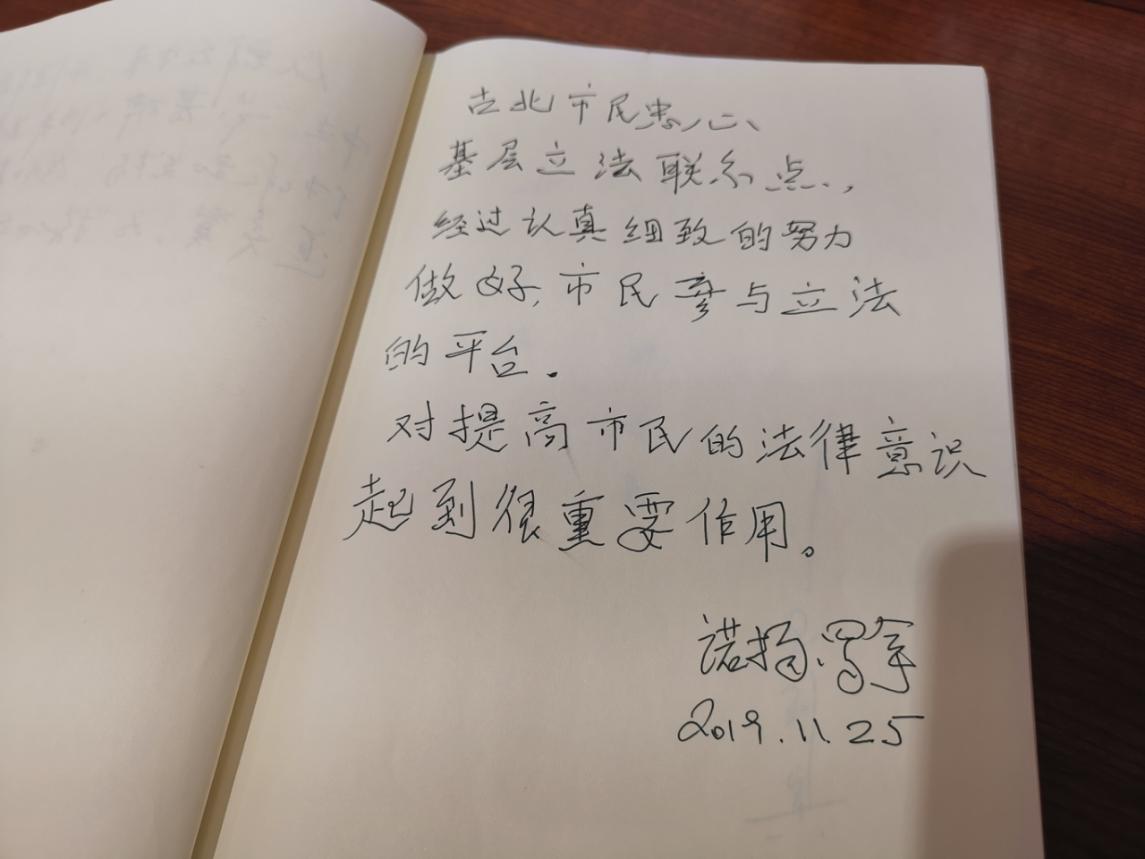 古北市民中心、
基层立法联系点，
经过认真细致的努力
做好，市民参与立法
的平台．
对提高市民的法律意识
起到很重要作用。
诺扬
2019.11.25